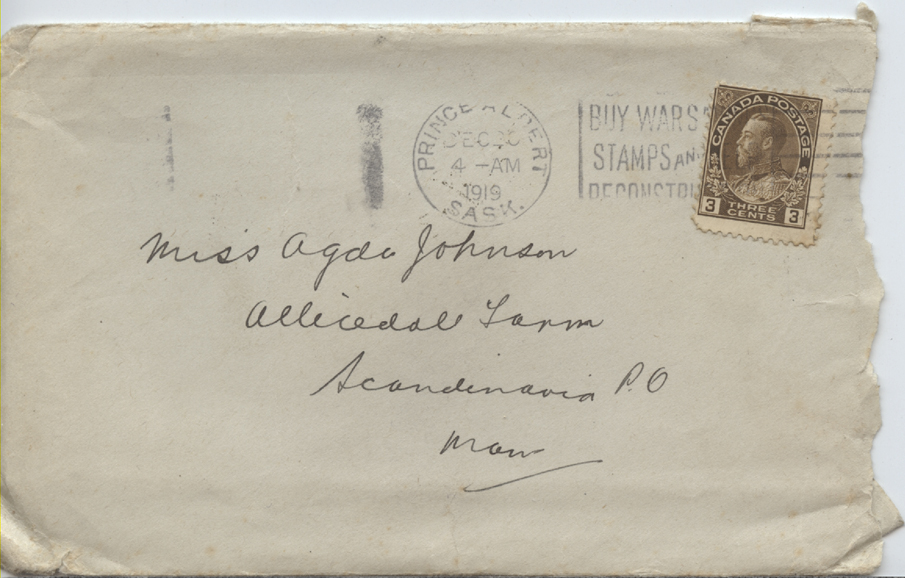 PRINCE ALBERT
DEC
4 - AM
1919
SASK.
BUY WAR S
STAMPS AN
RECONSTRU
CANADA POSTAGE
3 THREE CENTS 3
Miss Agda Johnson
Allicedale Farm
Scandinavia P.O
Man